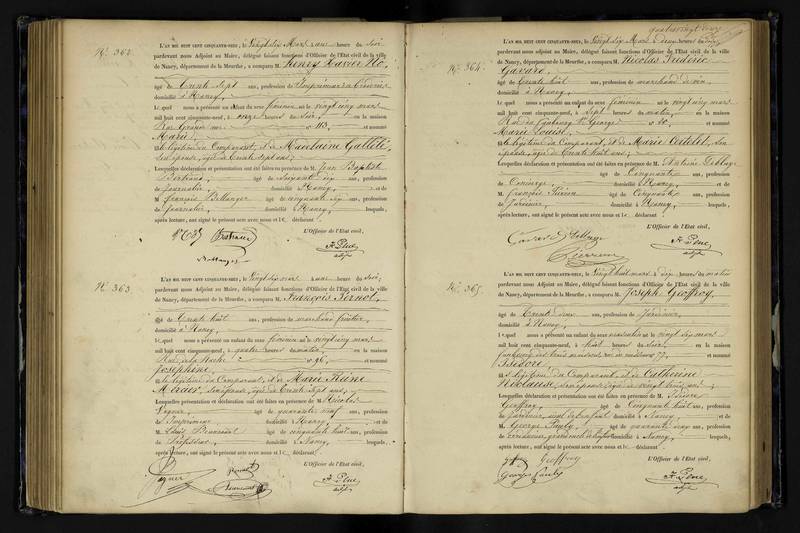 N.º 362
L'AN MIL HUIT CENT CINQUANTE-NEUF, le Vingt six Mars à une heure du soir
pardevant nous Adjoint au Maire, délégué faisant fonctions d'Officier de l'État civil de la ville
de Nancy, département de la Meurthe, a comparu M. Henry Xavier
âgé de Trente Sept ans, profession de Imprimeur en
domicilié à Nancy,
lequel nous a présenté un enfant du sexe féminin né le vingt cinq mars
mil huit cent cinquante-neuf, à onze heures du soir, en la maison
n.º 113, et nommé
Marie,
fille légitime du Comparant, et de Madelaine
son épouse, âgée de Trente sept ans;
Lesquelles déclaration et présentation ont été faites en presence de M. Jean Baptiste
âgé de soixante dix ans, profession
de journalier, domicilié à Nancy, et de
M. François Bellanger âgé de cinquante six ans, profession
de journalier, domicilié à Nancy, lesquels,
après lecture, ont signé le présent acte avec nous et le déclarant
L'Officier de l'État civil,
Bellanger
adjt
N.º 363
L'AN MIL HUIT CENT CINQUANTE-NEUF, le Vingt six mars à une heure du soir,
pardevant nous Adjoint au Maire, délégué faisant fonctions d'Officier de l'État civil de la ville
de Nancy, département de la Meurthe, a comparu M. François
âgé de Trente huit ans, profession de marchand fruitier,
domicilié à Nancy,
lequel nous a présenté un enfant du sexe féminin né le vingt cinq mars
mil huit cent cinquante-neuf, à quatre heures du matin, en la maison
Rue de la n.º 96, et nommé
Joséphine,
fille légitime du Comparant, et de Marie Reine
son épouse, âgée de Trente Sept ans;
Lesquelles présentation et déclaration ont été faites en présence de M. Nicolas
Pagner âgé de quarante neuf ans, profession
d'Imprimeur domicilié à Nancy, et de
M. Louis âgé de cinquante huit ans, profession
de Professeur, domicilié à Nancy, lesquels,
après lecture, ont signé le présent acte avec nous et le déclarant
L'Officier de l'État civil,
Pagner
adjt
quatre vingt
N.º 364
L'AN MIL HUIT CENT CINQUANTE-NEUF, le Vingt six Mars à deux heures du soir,
pardevant nous Adjoint au Maire, délégué faisant fonctions d'Officier de l'État civil de la ville
de Nancy, département de la Meurthe, a comparu M. Nicolas Frédéric
Gavard,
âgé de Trente huit ans, profession de marchand de vin,
domicilié à Nancy,
lequel nous a présenté un enfant du sexe féminin né le vingt cinq mars
mil huit cent cinquante-neuf, à sept heures du matin, en la maison
Rue du faubourg St. George n.º 80, et nommé
Marie Louise,
fille légitime du Comparant, et de Marie son
épouse, âgée de Trente huit ans;
Lesquelles déclaration et présentation ont été faites en presence de M. Antoine
âgé de Cinquante ans, profession
de Concierge, domicilié à Nancy, et de
M. François âgé de Cinquante ans, profession
de Jardinier, domicilié à Nancy, lesquels,
après lecture, ont signé le présent acte avec nous et le déclarant
L'Officier de l'État civil,
adjt
N.º 365
L'AN MIL HUIT CENT CINQUANTE-NEUF, le Vingt huit mars à dix heures du matin
pardevant nous Adjoint au Maire, délégué faisant fonctions d'Officier de l'État civil de la ville
de Nancy, département de la Meurthe, a comparu M. Joseph Geoffroy,
âgé de Trente deux ans, profession de Jardinier,
domicilié à Nancy,
lequel nous a présenté un enfant du sexe masculin né le vingt six mars
mil huit cent cinquante-neuf, à huit heures du soir, en la maison
faubourg des trois maisons, 77, et nommé
Isidore
fils légitime du Comparant, et de Catherine
son épouse, âgée de vingt trois ans;
Lesquelles déclaration et présentation ont été faites en presence de M. Isidore
Geoffroy, âgé de Cinquante huit ans, profession
de Jardinier, aïeul de l'enfant domicilié à Nancy, et de
M. George Pauly âgé de quarante cinq ans, profession
de domicilié à Nancy, lesquels,
après lecture, ont signé le présent acte avec nous et le déclarant
L'Officier de l'État civil,
Geoffroy
George Pauly
adjt